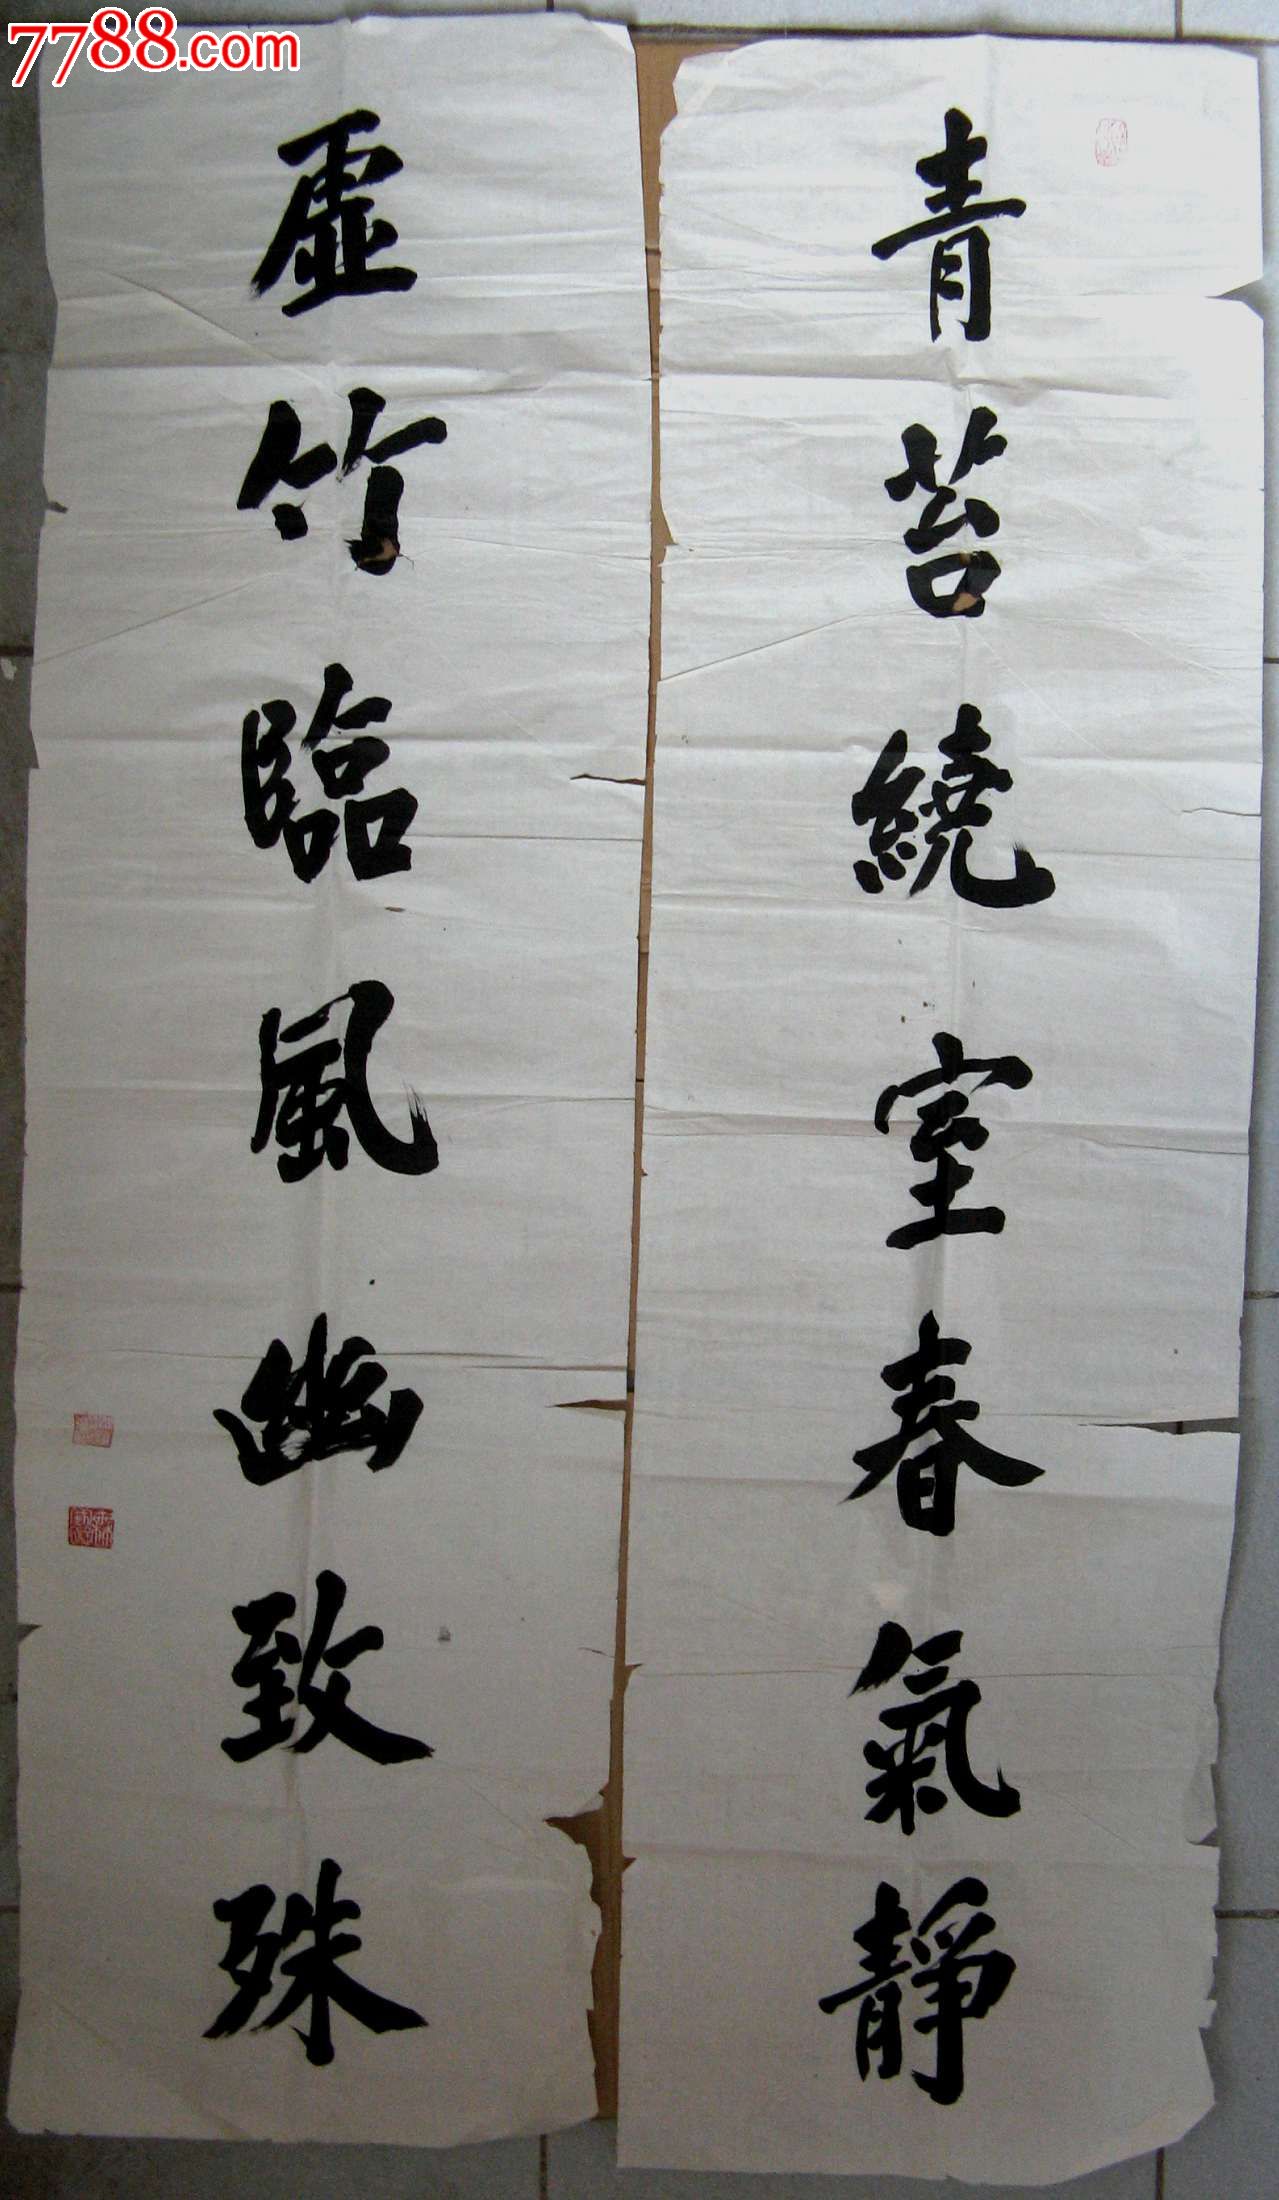 7788.com
青苔繞室春氣靜
虛竹臨風幽致殊